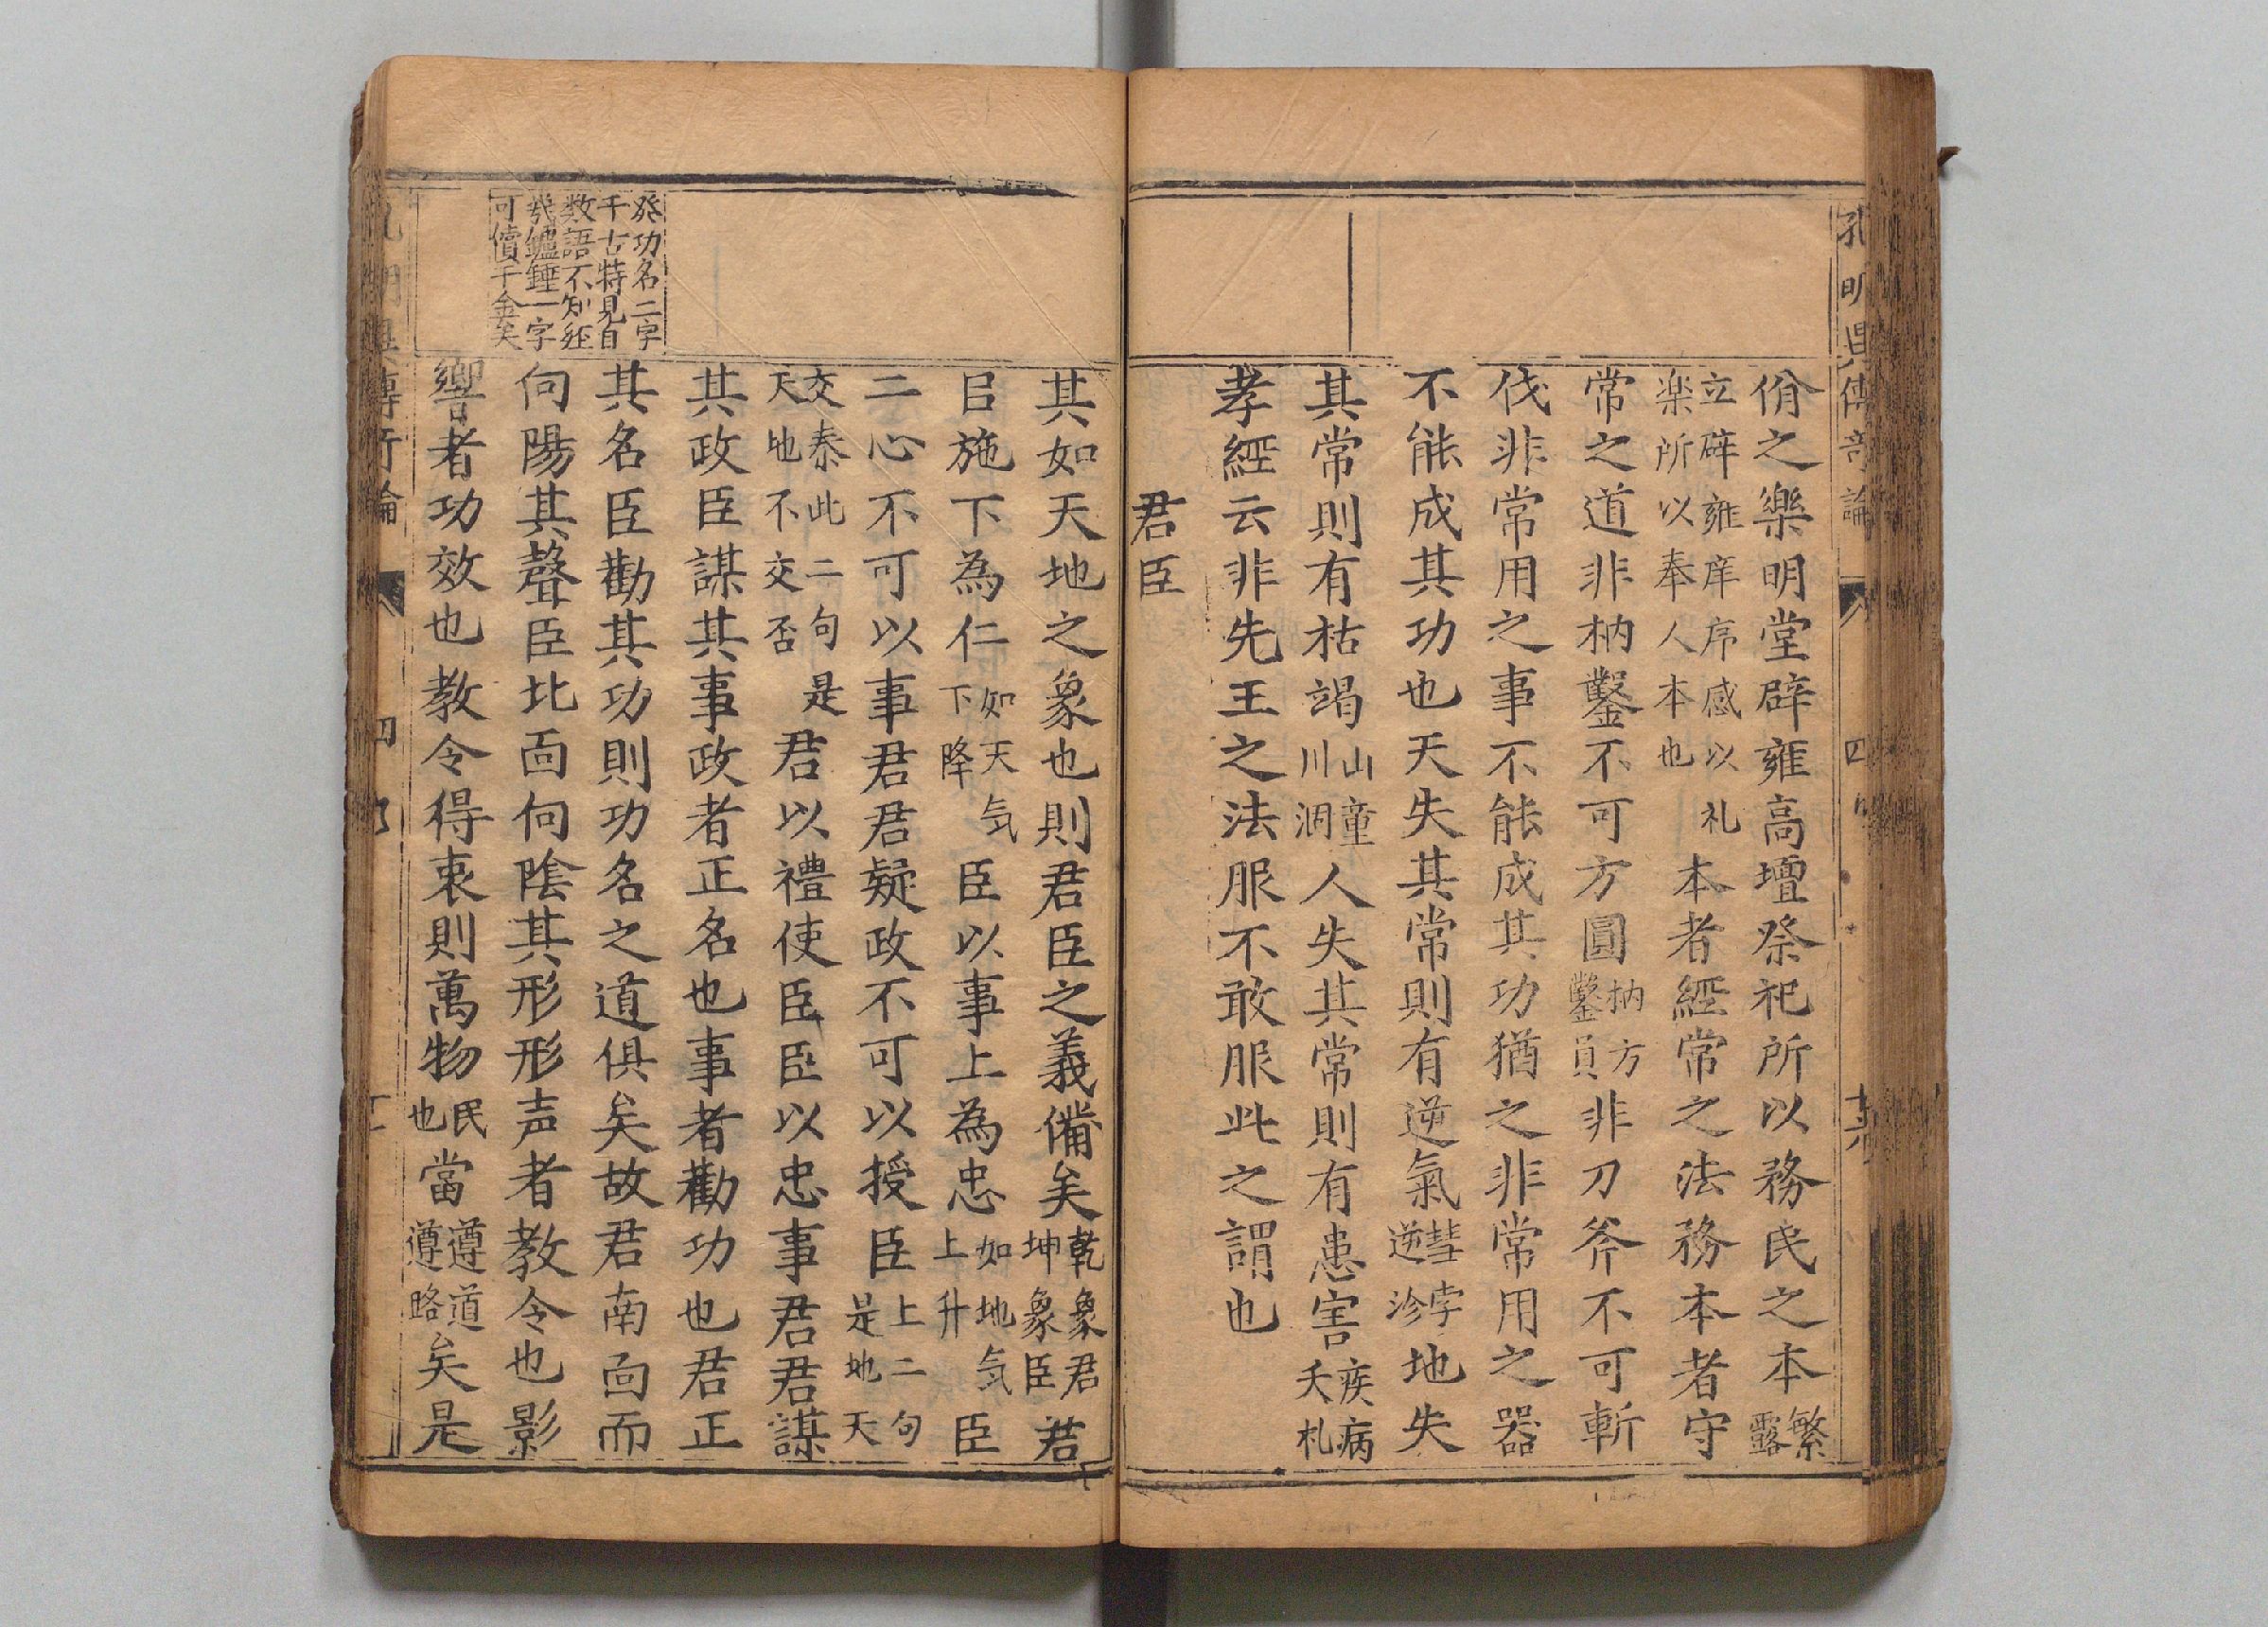 孔明異傳奇論 四
佾之樂明堂辟雍高壇祭祀所以務民之本繁露
立辟雍庠序感以礼楽所以奉人本也本者經常之法務本者守
常之道非枘鑿不可方圓枘方鑿員非刀斧不可斬
伐非常用之事不能成其功猶之非常用之器
不能成其功也天失其常則有逆氣彗孛逆沴地失
其常則有枯竭山童川涸人失其常則有患害疾病夭札
孝經云非先王之法服不敢服此之謂也
君臣
其如天地之象也則君臣之義備矣乾象君坤象臣君
臣施下為仁如天气下降臣以事上為忠如地气上升臣
二心不可以事君君疑政不可以授臣上二句是地天
交泰此二句是天地不交否君以禮使臣臣以忠事君君謀
其政臣謀其事政者正名也事者勸功也君正
其名臣勸其功則功名之道俱矣故君南面而
向陽其聲臣北面向陰其形形声者教令也影
響者功效也教令得衷則萬物民也當遵道遵路矣是
發功名二字
千古特見自
数語不知経
幾鑪錘一字
可償千金矣